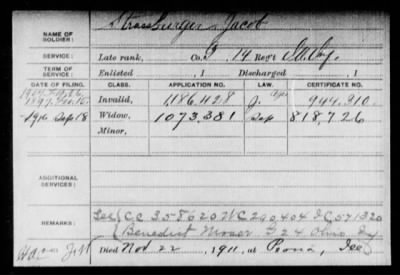 NAME OF SOLDIER: Strassburger, Jacob
SERVICE: Late rank, Co. G, 14 Reg't Ill. Cav.
TERM OF SERVICE: Enlisted , 1 Discharged , 1
DATE OF FILING. CLASS. APPLICATION NO. LAW. CERTIFICATE NO.
Invalid, 1186,428 944,310
1911 Sep 18 Widow, 1,073,381 Sep 818,726
Minor,
ADDITIONAL SERVICES:
REMARKS: See C C 358620 WC 290404 IC 571320
Benedict Moser G 24 Ohio Inf
Died Nov 22, 1911, at Peoria, Ill